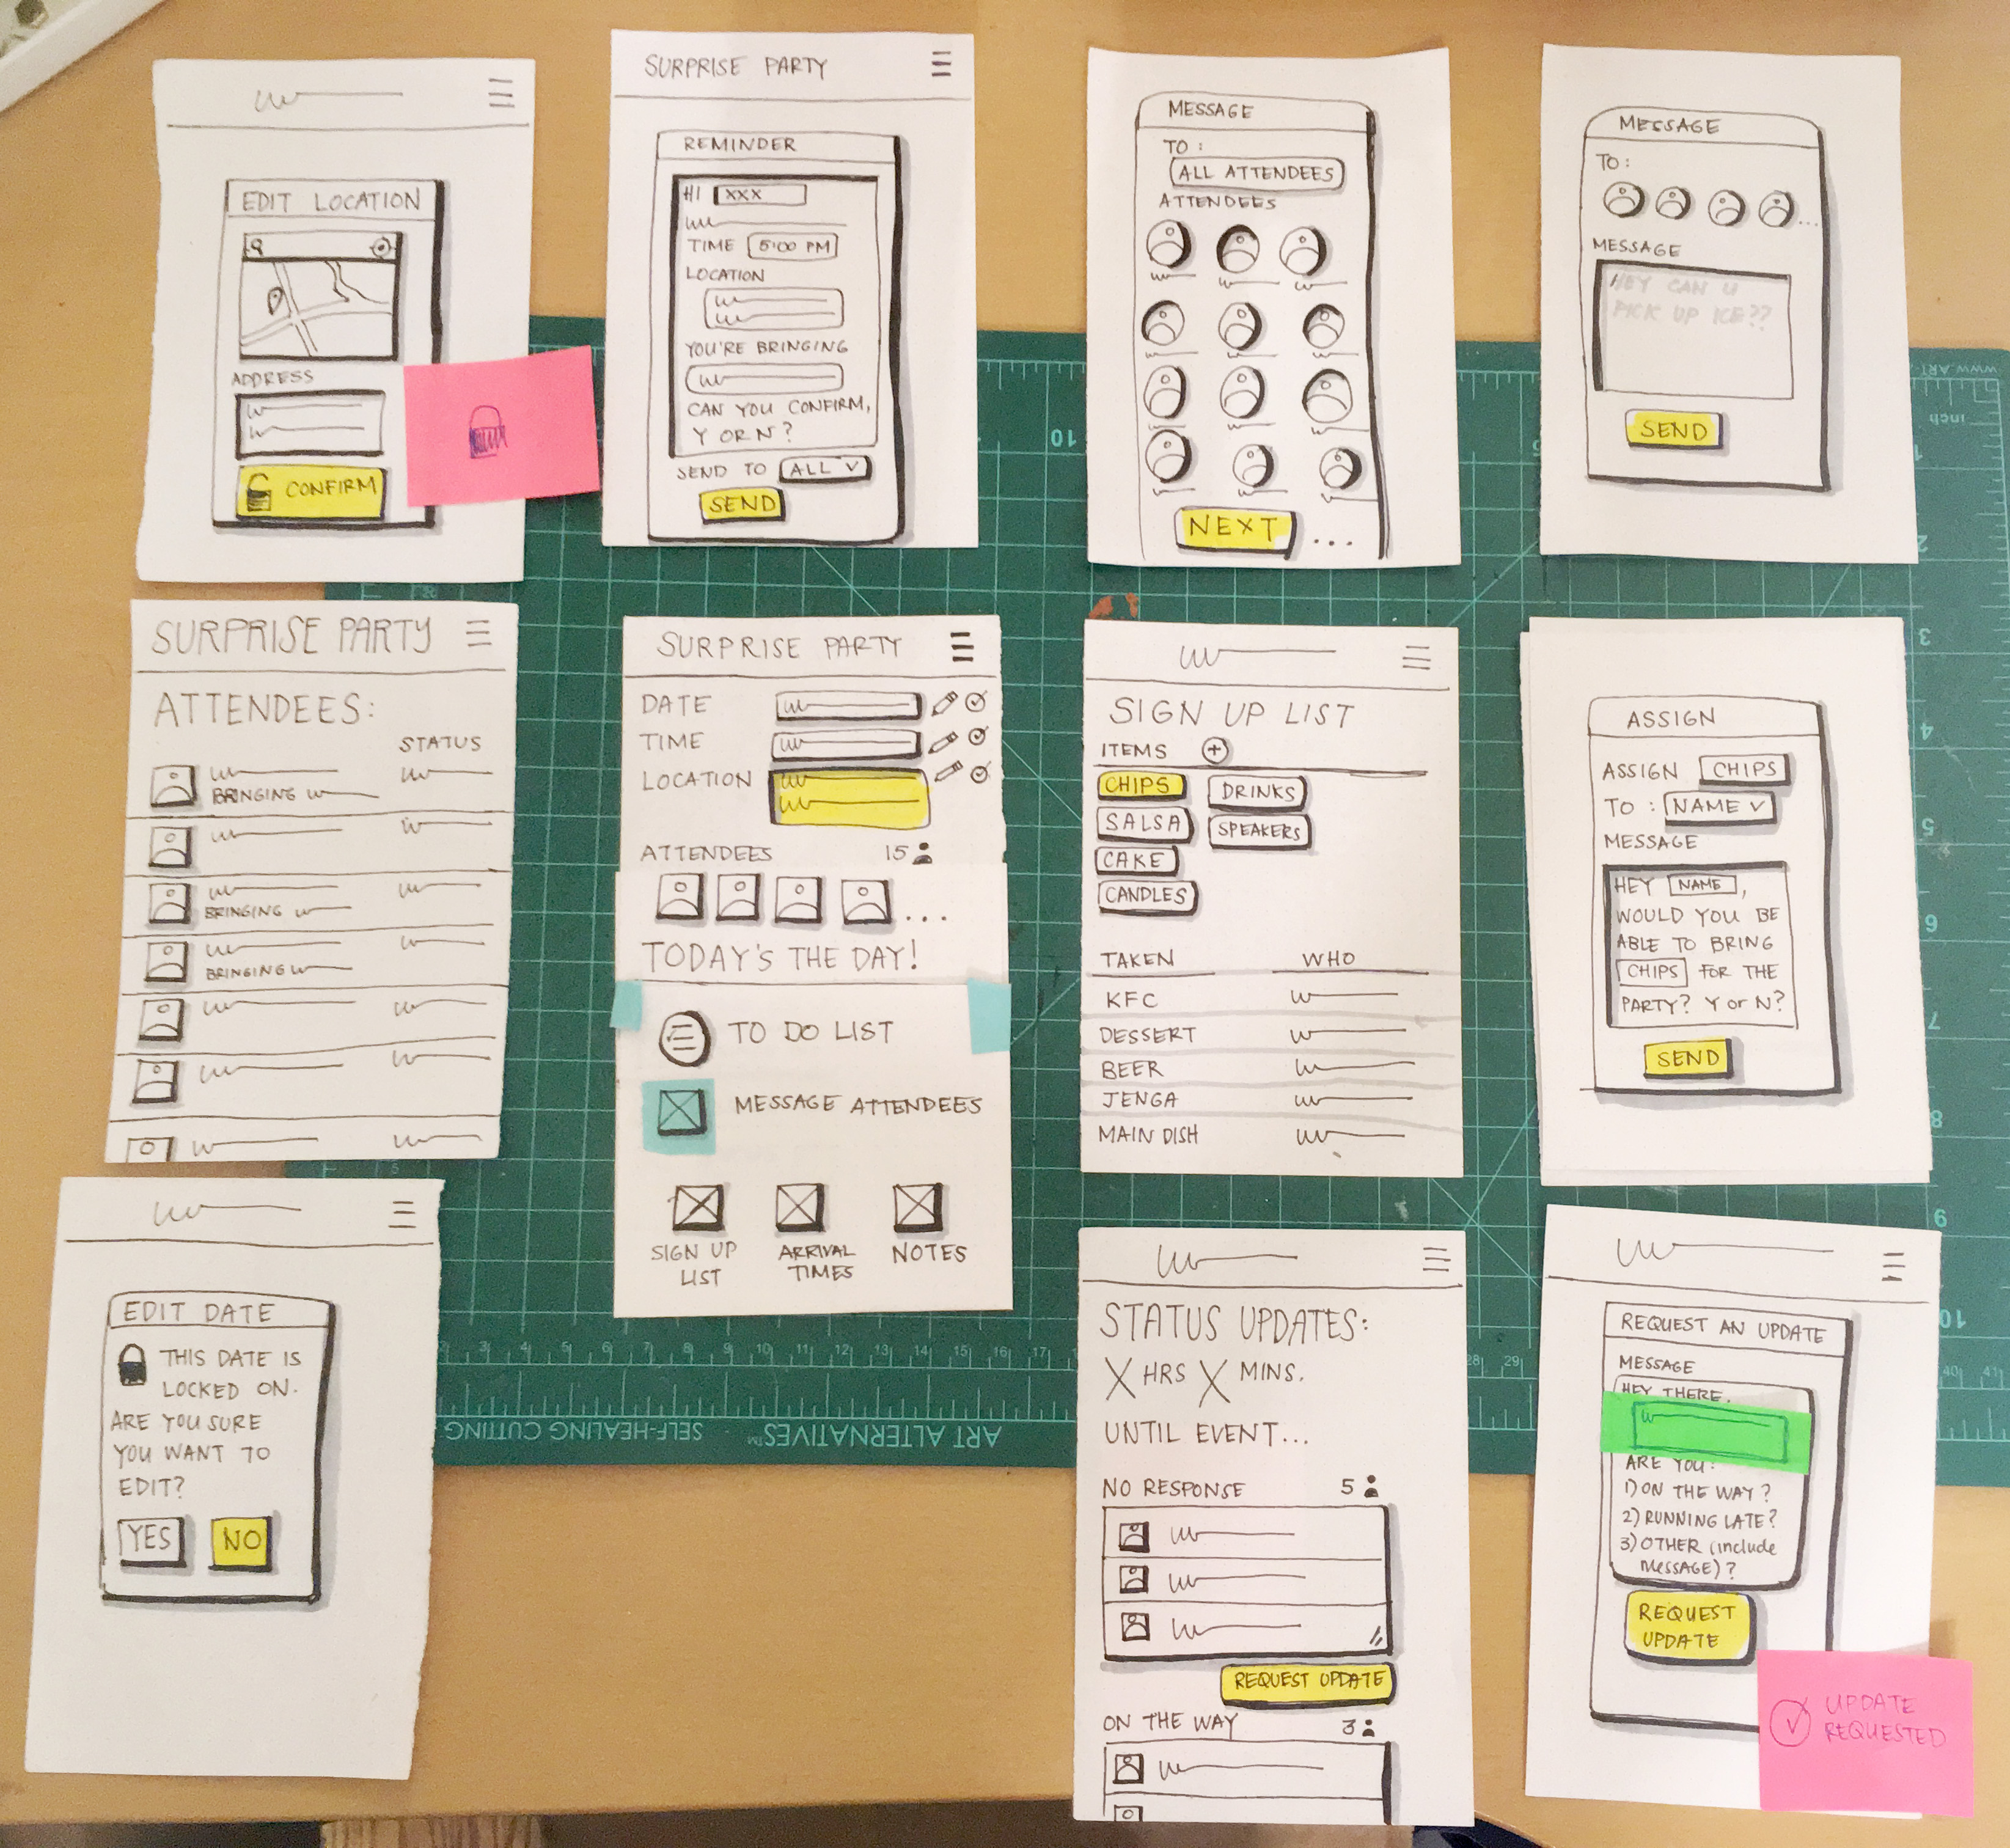 EDIT LOCATION
ADDRESS
CONFIRM
SURPRISE PARTY
REMINDER
HI XXX
TIME 5:00 PM
LOCATION
YOU'RE BRINGING
CAN YOU CONFIRM,
Y OR N?
SEND TO ALL
SEND
MESSAGE
TO:
ALL ATTENDEES
ATTENDEES
NEXT ...
MESSAGE
TO:
...
MESSAGE
HEY CAN U
PICK UP ICE??
SEND
SURPRISE PARTY
ATTENDEES:
STATUS
BRINGING
BRINGING
BRINGING
SURPRISE PARTY
DATE
TIME
LOCATION
ATTENDEES 15
...
TODAY'S THE DAY!
TO DO LIST
MESSAGE ATTENDEES
SIGN UP
LIST
ARRIVAL
TIMES
NOTES
SIGN UP LIST
ITEMS +
CHIPS DRINKS
SALSA SPEAKERS
CAKE
CANDLES
TAKEN WHO
KFC
DESSERT
BEER
JENGA
MAIN DISH
ASSIGN
ASSIGN CHIPS
TO: NAME
MESSAGE
HEY NAME,
WOULD YOU BE
ABLE TO BRING
CHIPS FOR THE
PARTY? Y or N?
SEND
EDIT DATE
THIS DATE IS
LOCKED ON.
ARE YOU SURE
YOU WANT TO
EDIT?
YES NO
STATUS UPDATES:
X HRS X MINS.
UNTIL EVENT...
NO RESPONSE 5
REQUEST UPDATE
ON THE WAY 3
REQUEST AN UPDATE
MESSAGE
HEY THERE,
ARE YOU:
1) ON THE WAY?
2) RUNNING LATE?
3) OTHER (include
MESSAGE)?
REQUEST
UPDATE
UPDATE
REQUESTED
ART ALTERNATIVES™ SELF-HEALING CUTTING
inch
10
1
2
3
4
5
6
7
8
9
10
3 4 5 6 7 8 9 10 11 12 13 14 15 16 17
28 29
40 41